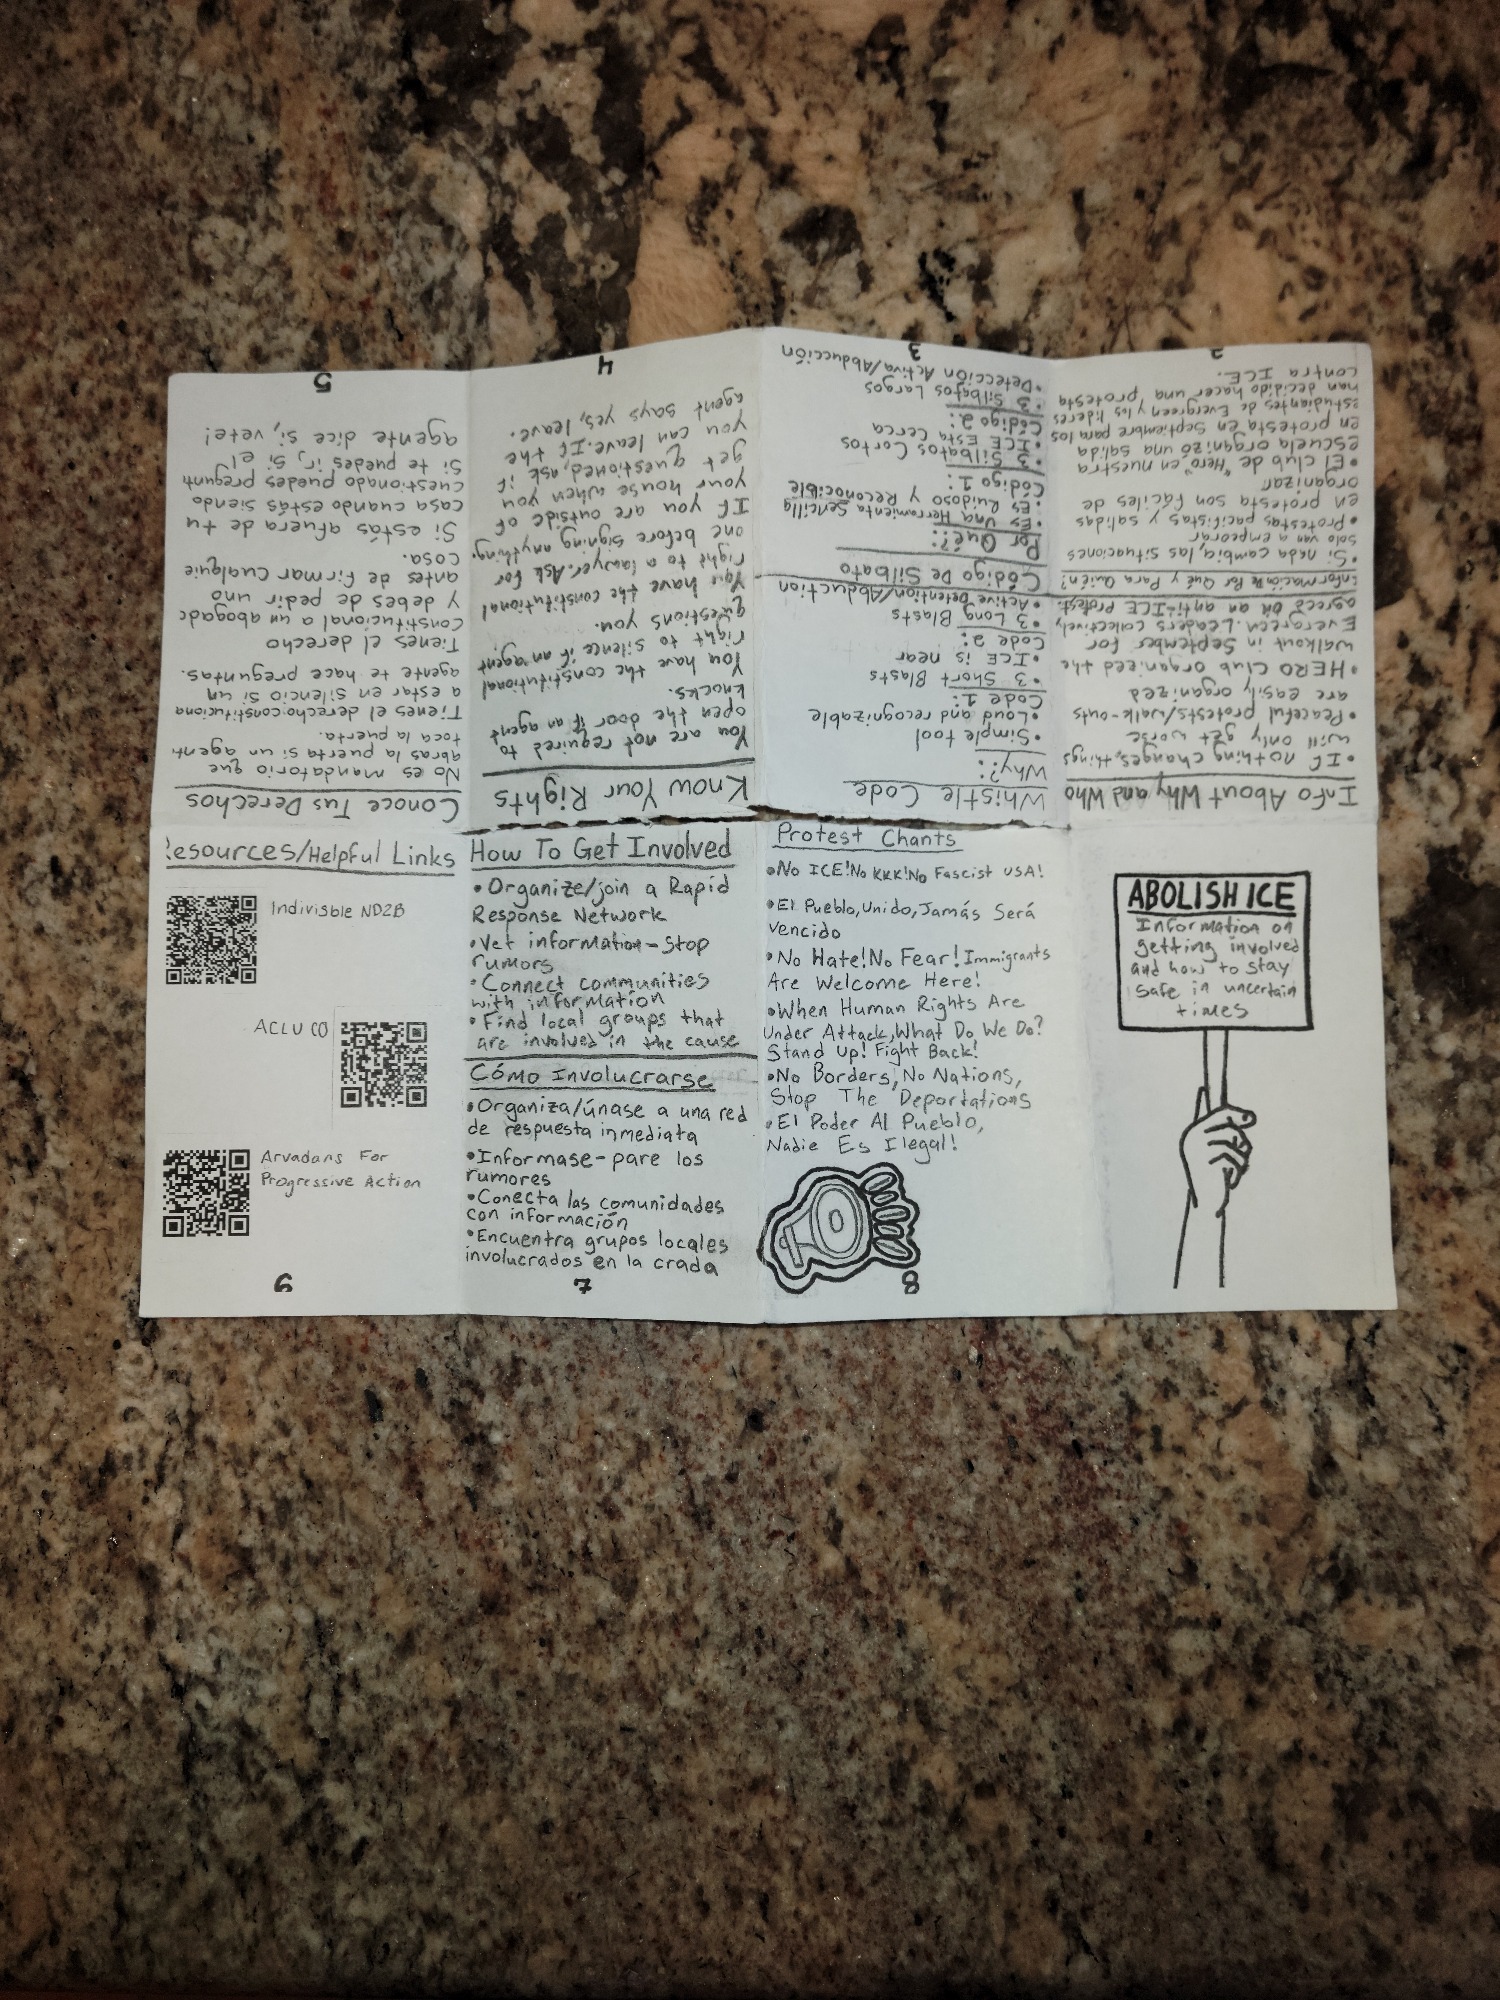 ABOLISH ICE
Information on
getting involved
and how to stay
safe in uncertain
times
Info About Why and Who
•If nothing changes, things
will only get worse
•Peaceful protests/walk-outs
are easily organized
•HERO Club organized the
walkout in September for
Evergreen. Leaders collectively
agreed on an anti-ICE protest.
Información: Por Qué y Para Quién?
•Si nada cambia, las situaciones
solo van a empeorar
•Protestas pacifistas y salidas
en protesta son fáciles de
organizar
•El club de "Hero" en nuestra
escuela organizó una salida
en protesta en Septiembre para los
estudiantes de Evergreen y los lideres
han decidido hacer una protesta
contra ICE.
2
Whistle Code
Why?:
•Simple tool
•Loud and recognizable
Code 1:
•3 Short Blasts
•ICE is near
Code 2:
•3 Long Blasts
•Active Detention/Abduction
Código De Silbato
Por Qué?:
•Es Una Herramienta Sencilla
•Es Ruidoso y Reconocible
Código 1:
•3 Silbatos Cortos
•ICE Esta Cerca
Código 2:
•3 Silbatos Largos
•Detección Activa/Abducción
3
Know Your Rights
You are not required to
open the door if an agent
knocks.
You have the constitutional
right to silence if an agent
questions you.
You have the constitutional
right to a lawyer. Ask for
one before signing anything.
If you are outside of
your house when you
get questioned, ask if
you can leave. If the
agent says yes, leave.
4
Conoce Tus Derechos
No es mandatorio que
abras la puerta si un agent
toca la puerta.
Tienes el derecho constituciona
a estar en silencio si un
agente te hace preguntas.
Tienes el derecho
Constitucional a un abogado
y debes de pedir uno
antes de firmar cualquie
cosa.
Si estás afuera de tu
casa cuando estás siendo
cuestionado puedes pregunt
si te puedes ir, si el
agente dice si, vete!
5
Resources/Helpful Links
Indivisble ND2B
ACLU CO
Arvadans For
Progressive Action
6
How To Get Involved
•Organize/join a Rapid
Response Network
•Vet information-stop
rumors
•Connect communities
with information
•Find local groups that
are involved in the cause
Cómo Involucrarse
•Organiza/únase a una red
de respuesta inmediata
•Informase-pare los
rumores
•Conecta las comunidades
con información
•Encuentra grupos locales
involucrados en la crada
7
Protest Chants
•No ICE! No KKK! No Fascist USA!
•El Pueblo, Unido, Jamás Será
Vencido
•No Hate! No Fear! Immigrants
Are Welcome Here!
•When Human Rights Are
Under Attack, What Do We Do?
Stand Up! Fight Back!
•No Borders, No Nations,
Stop The Deportations
•El Poder Al Pueblo,
Nadie Es Ilegal!
8